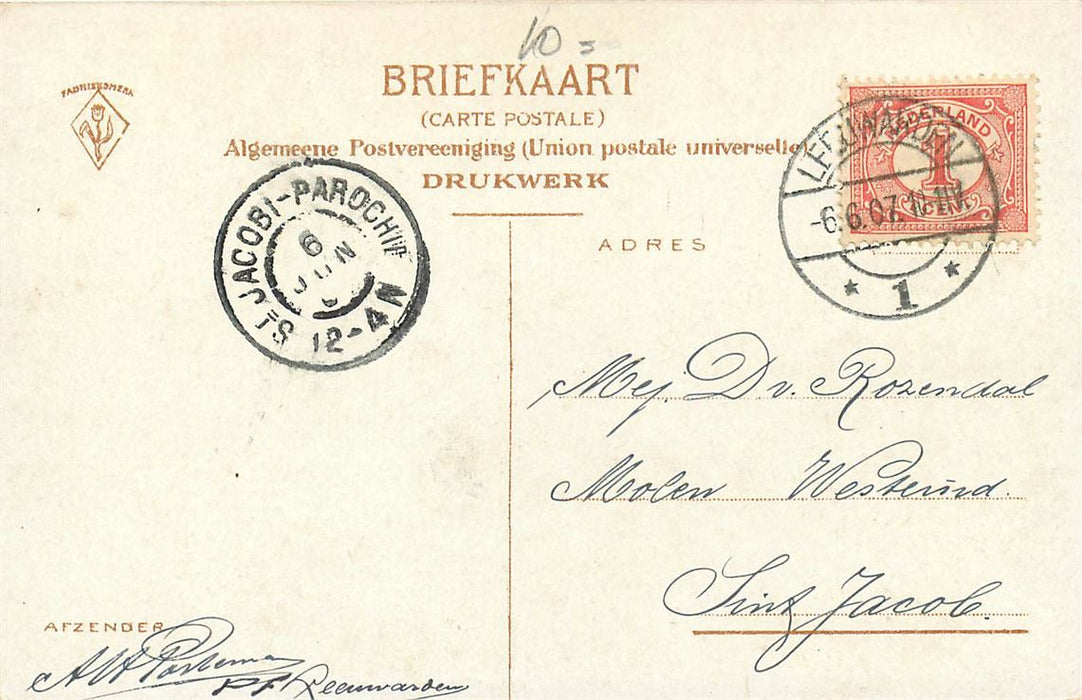 10 =
FABRIEKSMERK
BRIEFKAART
(CARTE POSTALE)
Algemeene Postvereeniging (Union postale universelle)
DRUKWERK
NEDERLAND
1
CENT
LEEUWARDEN
-6.6.07.
1
ST JACOBI-PAROCHIE
6
JUN
12-4N
ADRES
Mej. D v. Rozendal
Molen Westeind.
Sint Jacob.
AFZENDER
Leeuwarden